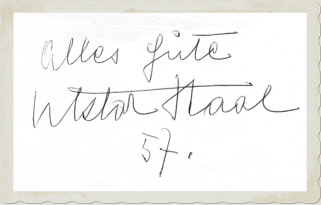 Alles Gute
Viktor Staal
57.